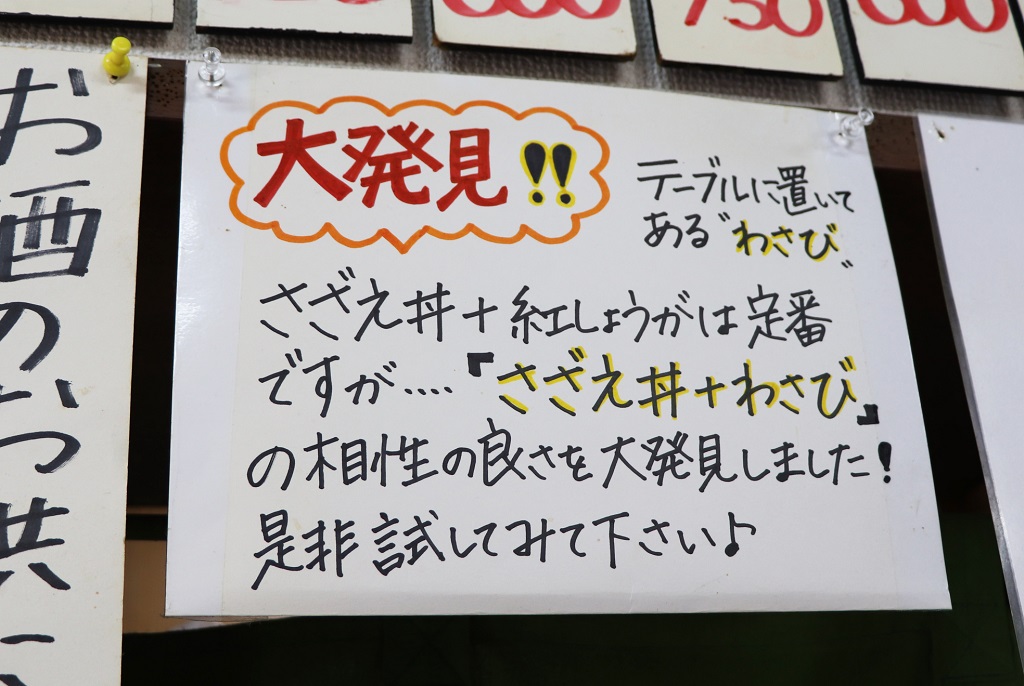 600
750
600
お酒のいつ共に
大発見!!
テーブルに置いて
ある"わさび"
さざえ丼+紅しょうがは定番
ですが....『さざえ丼+わさび』
の相性の良さを大発見しました!
是非試してみて下さい♪